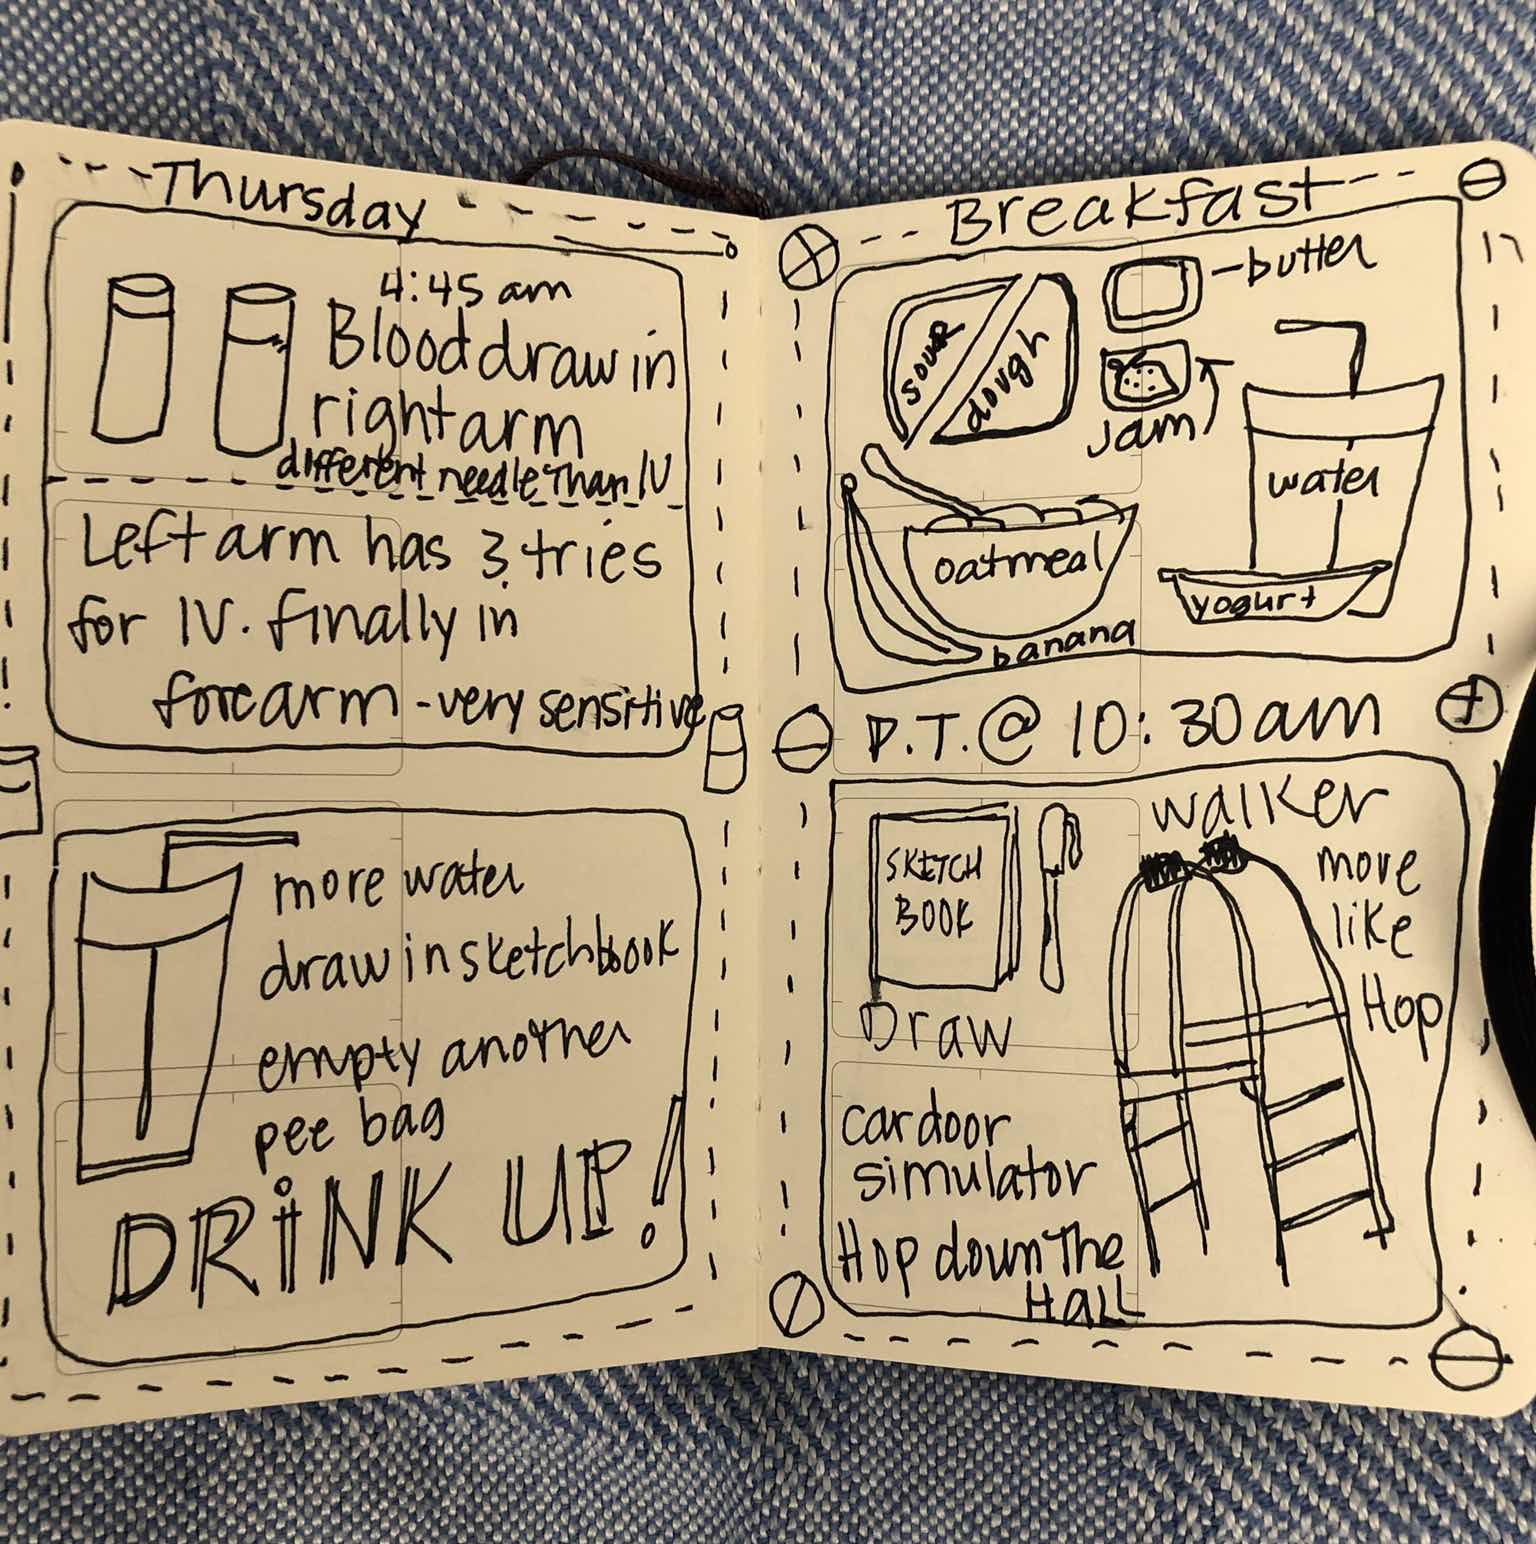 Thursday
4:45 am
Blood draw in
right arm
different needle Than IV
Left arm has 3 tries
for IV. finally in
forearm - very sensitive
more water
draw in sketchbook
empty another
pee bag
DRiNK UP!
Breakfast
butter
sour
dough
jam
water
oatmeal
yogurt
banana
P.T. @ 10:30 am
SKETCH
BOOK
Draw
walker
more
like
Hop
car door
simulator
Hop down The
HALL